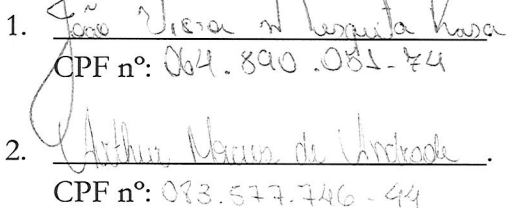 1. João Vieira Mesquita
CPF nº: 064.890.051-74
2. Arthur de Andrade .
CPF nº: 083.577.746-44